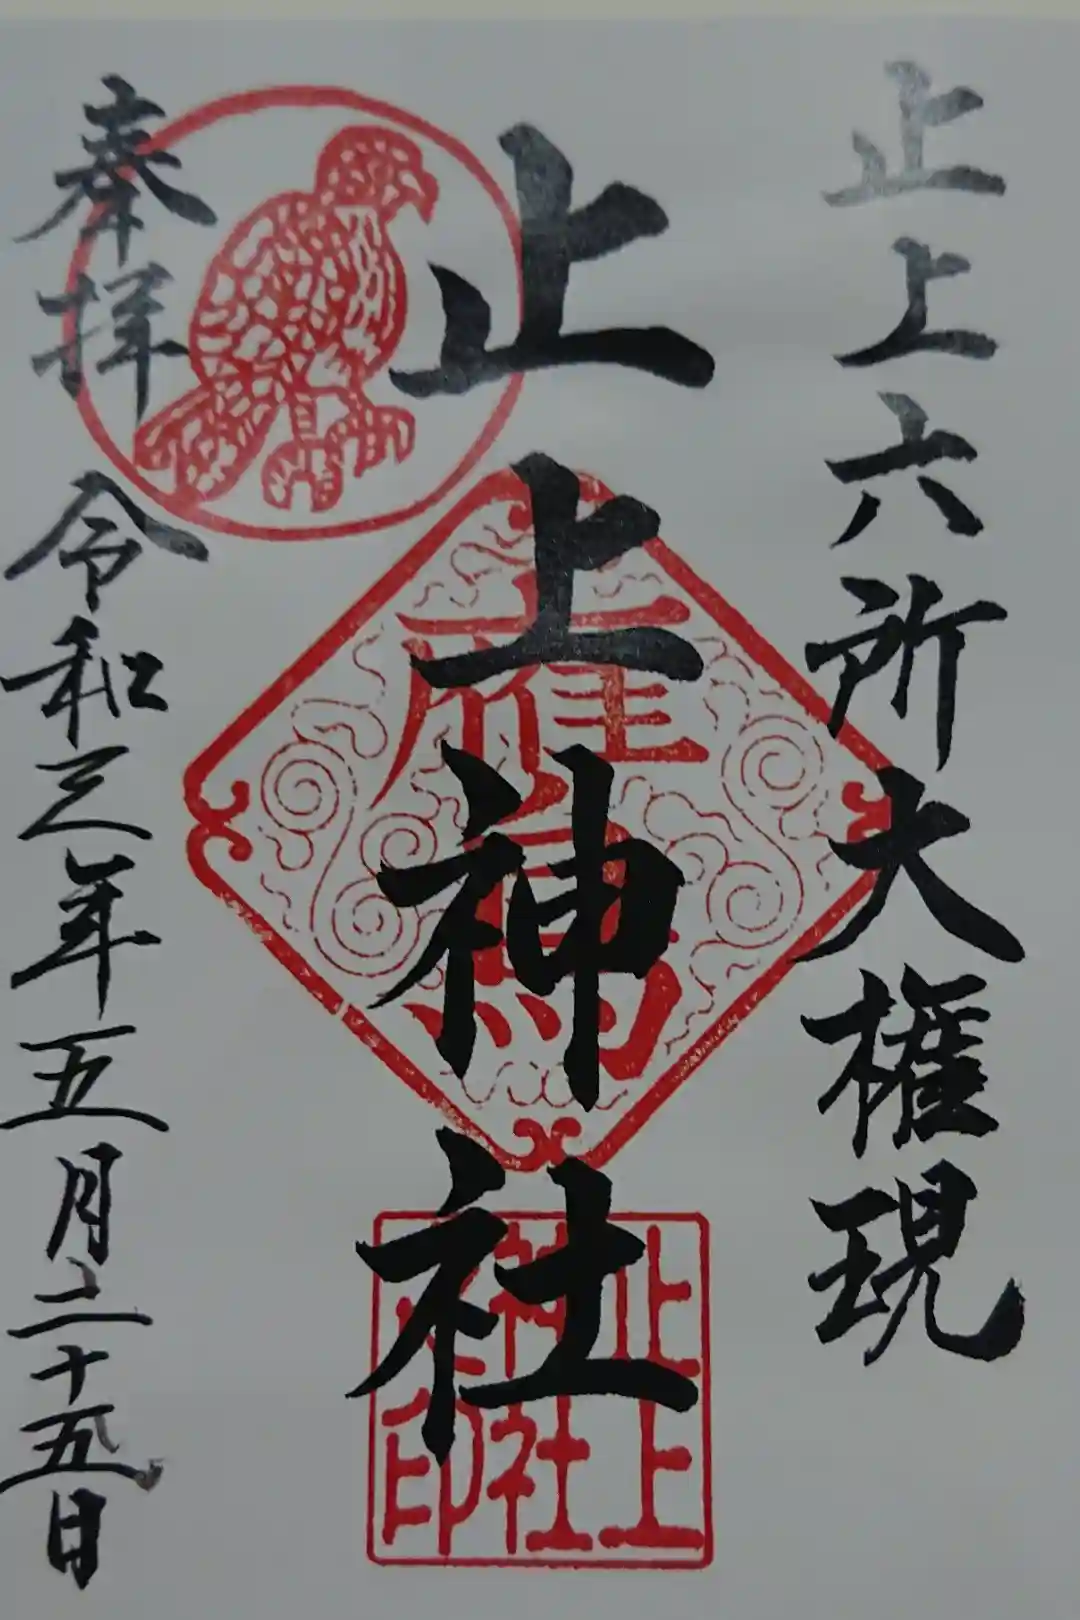 止上六所大権現
止上神社
奉拝
令和三年五月二十五日
鷹
止上
神社
之印